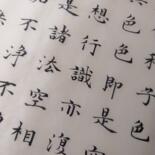 利子
色即是色
想行識亦復
是諸法空相
不淨不